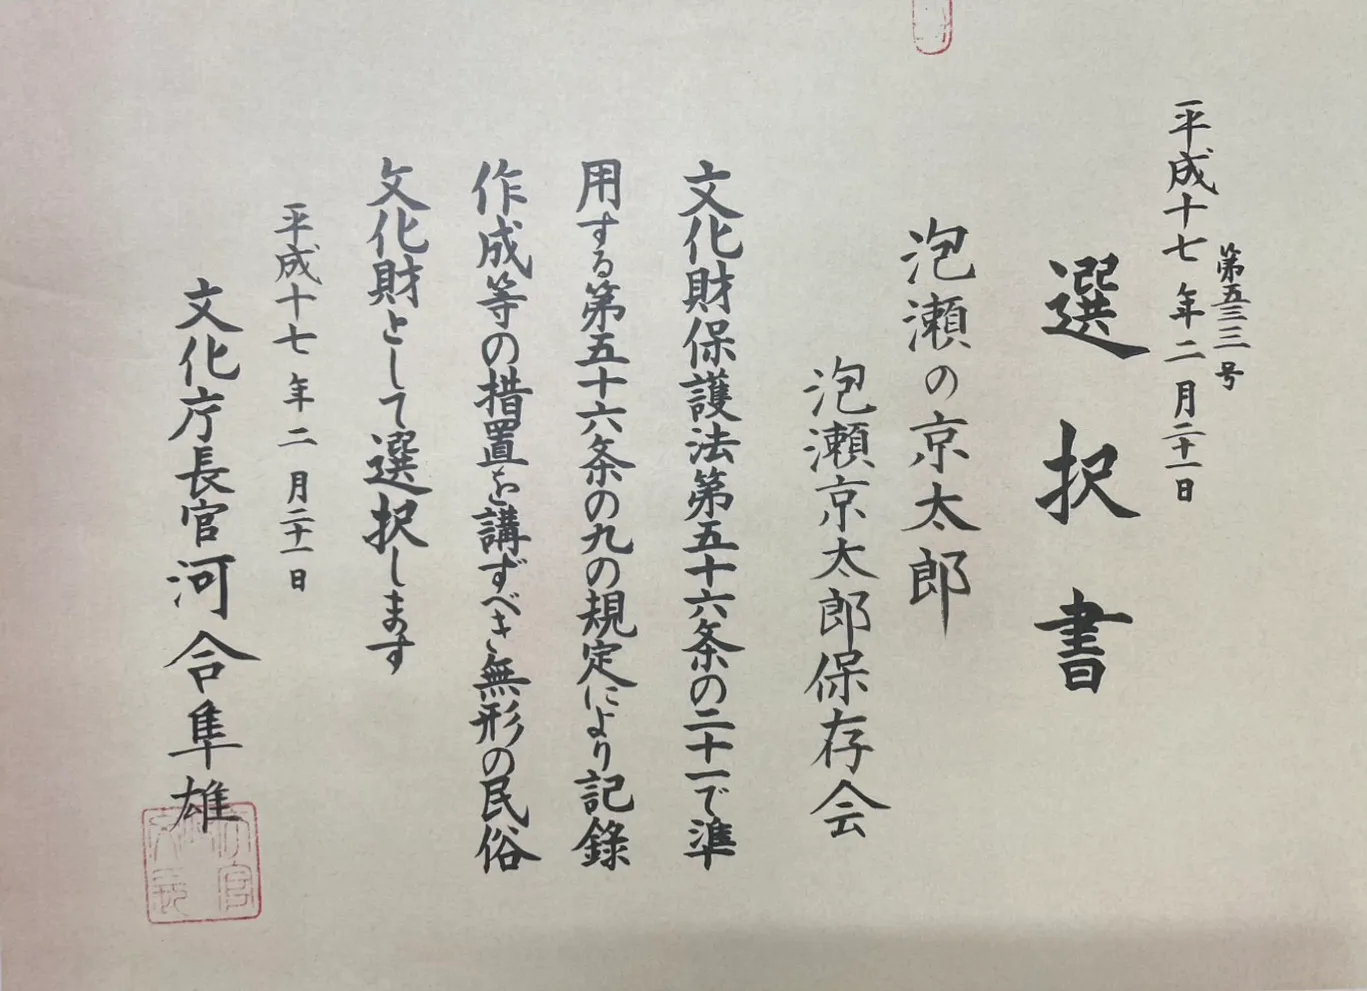 第五三三号
平成十七年二月二十一日
選択書
泡瀬の京太郎
泡瀬京太郎保存会
文化財保護法第五十六条の二十一で準
用する第五十六条の九の規定により記録
作成等の措置を講ずべき無形の民俗
文化財として選択します
平成十七年二月二十一日
文化庁長官河合隼雄